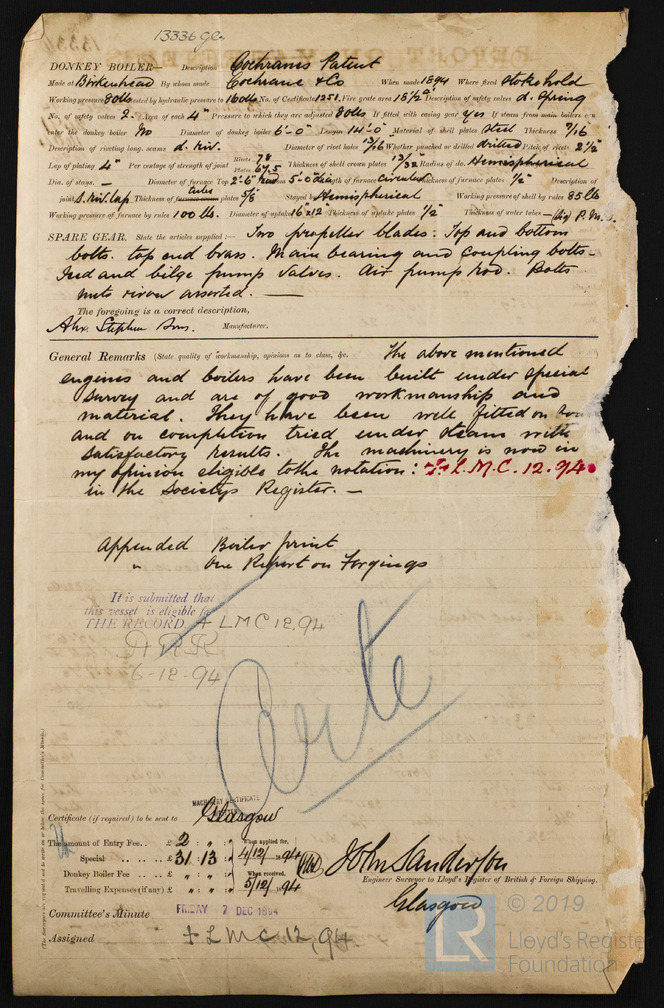 13336 Gls.
DONKEY BOILER— Description Cochrans Patent
Made at Birkenhead By whom made Cochrane & Co When made 1894 Where fixed Stokehold
Working pressure 80lbs tested by hydraulic pressure to 160lbs No. of Certificate 1251 Fire grate area 15½ Description of safety valves d. Spring
No. of safety valves 2 Area of each 4" Pressure to which they are adjusted 80lbs If fitted with easing gear yes If steam from main boilers can
enter the donkey boiler No Diameter of donkey boiler 6'-0" Length 14'-0" Material of shell plates Steel Thickness 7/16
Description of riveting long. seams d. riv. Diameter of rivet holes 13/16 Whether punched or drilled drilled Pitch of rivets 2½"
Lap of plating 4" Per centage of strength of joint Rivets 78 Plates 67.5 Thickness of shell crown plates 13/32 Radius of do. Hemispherical
Dia. of stays. — Diameter of furnace Top 2'-6" Bottom 5'-0" dia Length of furnace circular Thickness of furnace plates ½" Description of
joint S. Riv. lap Thickness of furnace crown tube plates 5/8" Stayed by Hemispherical Working pressure of shell by rules 85 lb
Working pressure of furnace by rules 100 lbs. Diameter of uptake 16 x 12" Thickness of uptake plates ½" Thickness of water tubes —
SPARE GEAR. State the articles supplied:— Two propeller blades: Top and bottom
bolts. top end brass. Main bearing and coupling bolts–
Feed and bilge pump valves. Air pump rod. Bolts
nuts assorted. —
The foregoing is a correct description,
Alex. Stephen Sons. Manufacturer.
General Remarks (State quality of workmanship, opinions as to class, &c. The above mentioned
engines and boilers have been built under special
survey and are of good workmanship and
material. They have been well fitted on
and on completion tried under steam with
satisfactory results. The machinery is now in
my opinion eligible to the notation: + L.M.C. 12.94
in the Society's Register. —
Appended Boiler print
" One Report on Forgings
It is submitted that
this vessel is eligible for
THE RECORD + LMC 12.94
6-12-94
MACHINERY CERTIFICATE
Certificate (if required) to be sent to Glasgow
The amount of Entry Fee.. £ 2 : " : " When applied for,
Special .. .. .. £ 31 : 13 : " 4/12/1894
Donkey Boiler Fee .. .. £ " : " : " When received,
Travelling Expenses (if any) £ " : " : " 5/12/1894
John Sanderson
Engineer Surveyor to Lloyd's Register of British & Foreign Shipping.
Glasgow
Committee's Minute FRIDAY 7 DEC 1894
Assigned + L M C 12,94.
LR © 2019
Lloyd's Register
Foundation